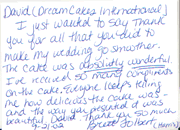 David (DreamCakes International)
I just wanted to say Thank
you for all that you did to
make my wedding go smoother.
The cake was absolutely wonderful.
I've received so many compliments
on the cake. Everyone keeps telling
me how delicious the cake was
and the way you presented it was
beautiful David. Thank you so much
-21-02